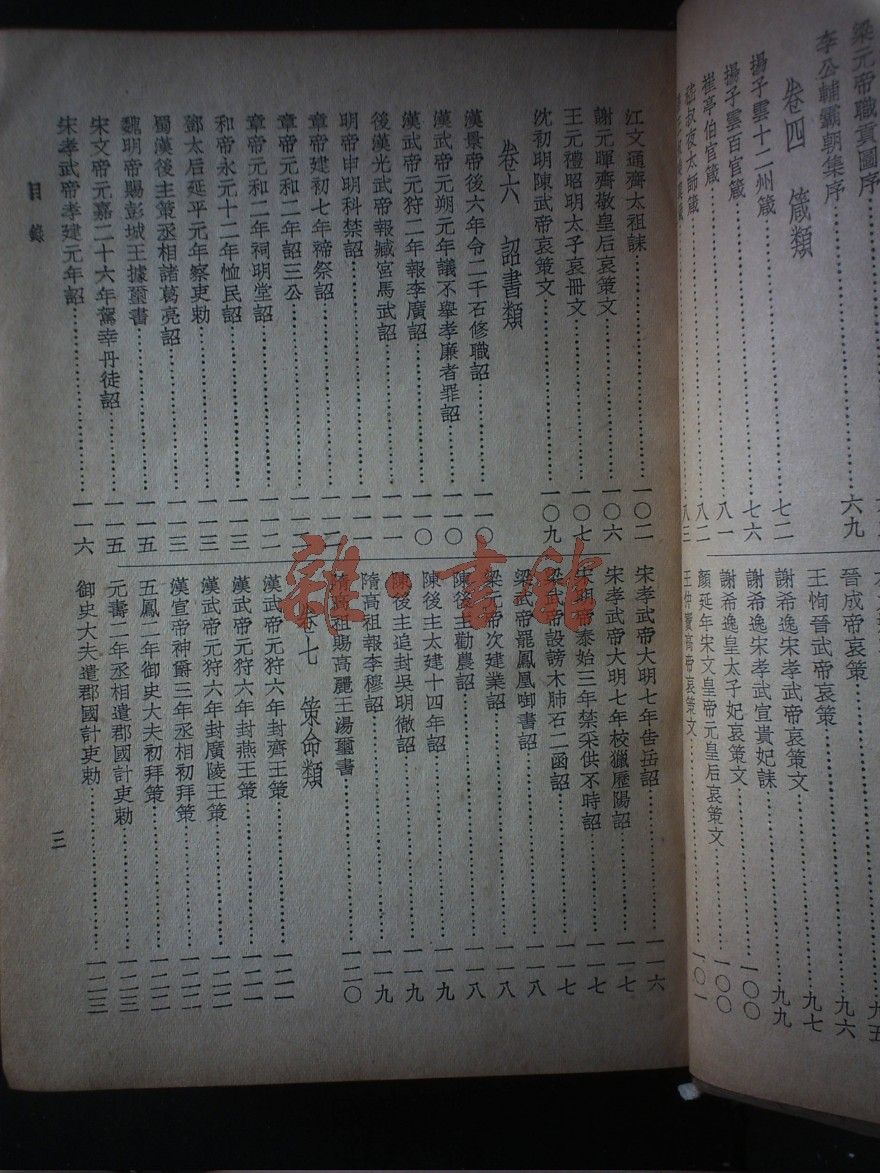 梁元帝職貢圖序
李公輔霸朝集序……六九
卷四　箴類
揚子雲十二州箴……七二
揚子雲百官箴……七六
崔亭伯官箴……八一
嵇叔夜太師箴……八二
八三
晉成帝哀策……九六
王恂晉武帝哀策……九七
謝希逸宋孝武帝哀策文……九九
謝希逸宋孝武宣貴妃誄……一〇〇
謝希逸皇太子妃哀策文……一〇〇
顏延年宋文皇帝元皇后哀策文……一〇一
王仲寶高帝哀策文
江文通齊太祖誄……一〇二
謝元暉齊敬皇后哀策文……一〇六
王元禮昭明太子哀冊文……一〇七
沈初明陳武帝哀策文……一〇九
卷六　詔書類
漢景帝後六年令二千石修職詔……一一〇
漢武帝元朔元年議不舉孝廉者罪詔……一一〇
漢武帝元狩二年報李廣詔……一一〇
後漢光武帝報臧宮馬武詔……一一一
明帝申明科禁詔……一一一
章帝建初七年禘祭詔……一一二
章帝元和二年詔三公……一一二
章帝元和二年祠明堂詔……一一二
和帝永元十二年恤民詔……一一三
鄧太后延平元年察吏勅……一一三
蜀漢後主策丞相諸葛亮詔……一一三
魏明帝賜彭城王據璽書……一一五
宋文帝元嘉二十六年駕幸丹徒詔……一一五
宋孝武帝孝建元年詔……一一六
宋孝武帝大明七年告岳詔……一一六
宋孝武帝大明七年校獵歷陽詔……一一七
宋明帝泰始三年禁采供不時詔……一一七
梁武帝設謗木肺石二函詔……一一七
梁武帝罷鳳凰啣書詔……一一八
梁元帝次建業詔……一一八
陳後主勸農詔……一一八
陳後主太建十四年詔……一一九
陳後主追封吳明徹詔……一一九
隋高祖報李穆詔……一一九
隋高祖賜高麗王湯璽書……一二〇
卷七　策命類
漢武帝元狩六年封齊王策……一二一
漢武帝元狩六年封燕王策……一二一
漢武帝元狩六年封廣陵王策……一二二
漢宣帝神爵三年丞相初拜策……一二二
五鳳二年御史大夫初拜策……一二二
元壽二年丞相遣郡國計吏勅……一二三
御史大夫遣郡國計吏勅……一二三
目錄
三
雜·書館